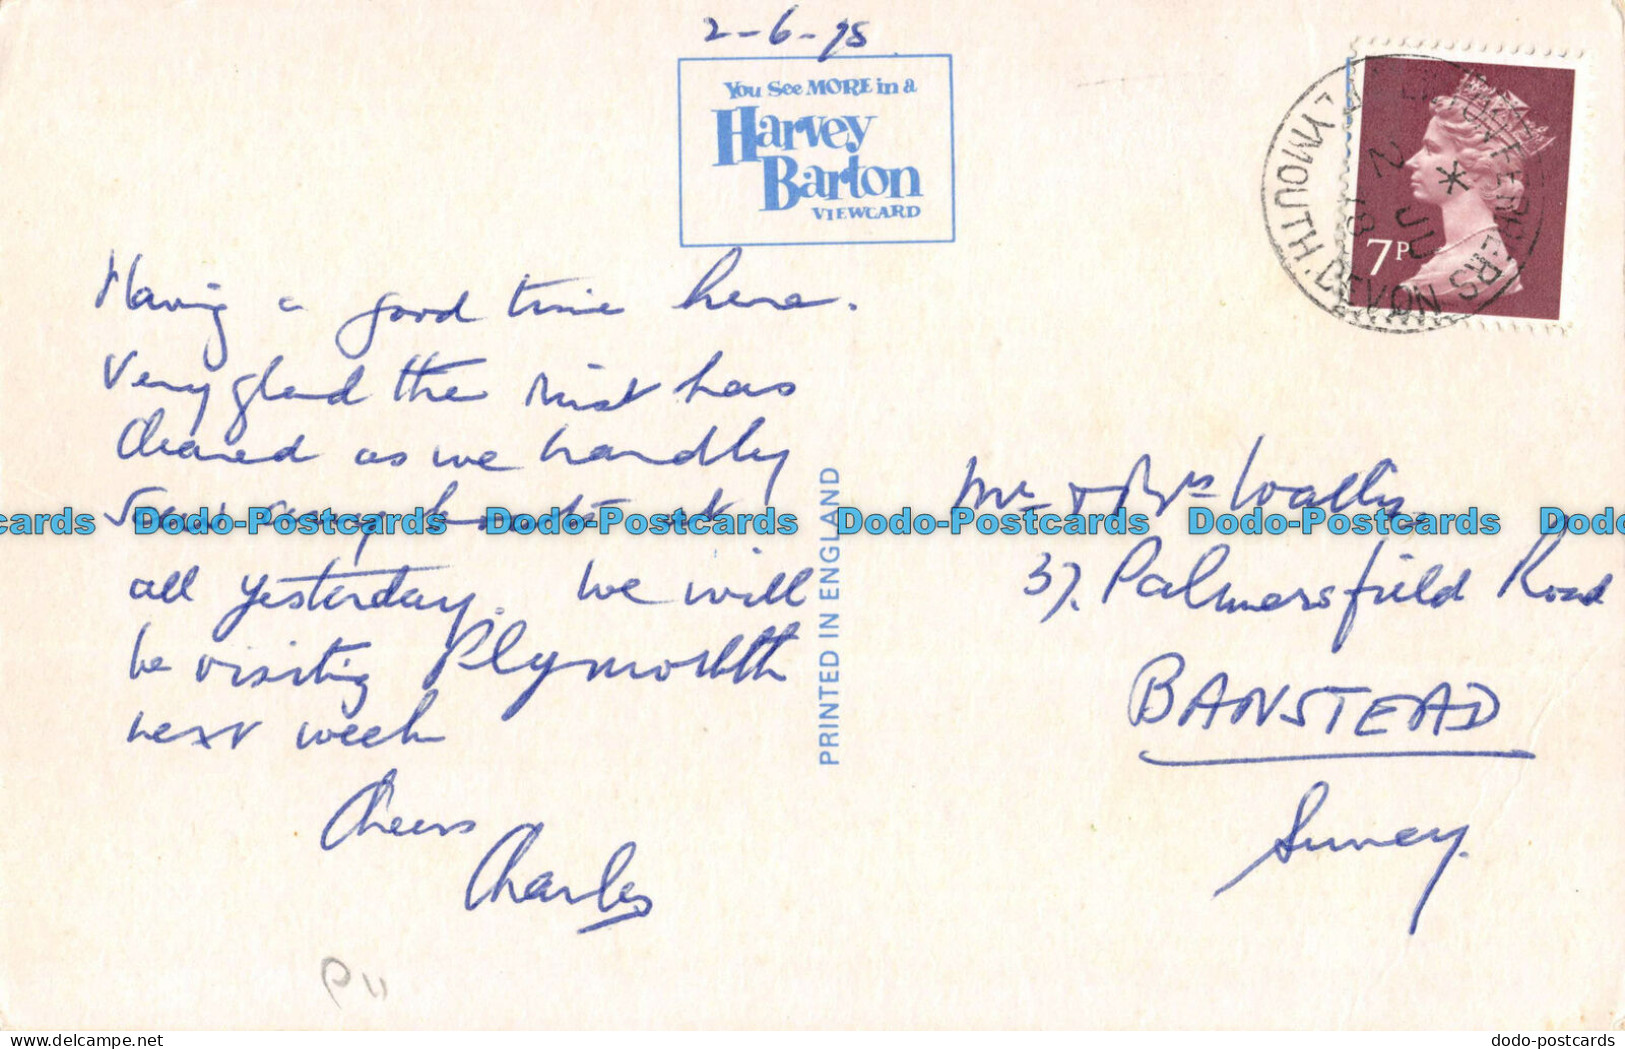 2-6-78
You See MORE in a
Harvey
Barton
VIEWCARD
7P
PLYMOUTH, DEVON
2 JU
78
Having a good time here.
Very glad the mist has
cleared as we hardly
saw any at
all yesterday. We will
be visiting Plymouth
next week
Cheers
Charles
PRINTED IN ENGLAND
Mr & Mrs
37. Palmersfield Road
BANSTEAD
Surrey.
Dodo-Postcards Dodo-Postcards Dodo-Postcards Dodo-Postcards
delcampe.net
dodo-postcards